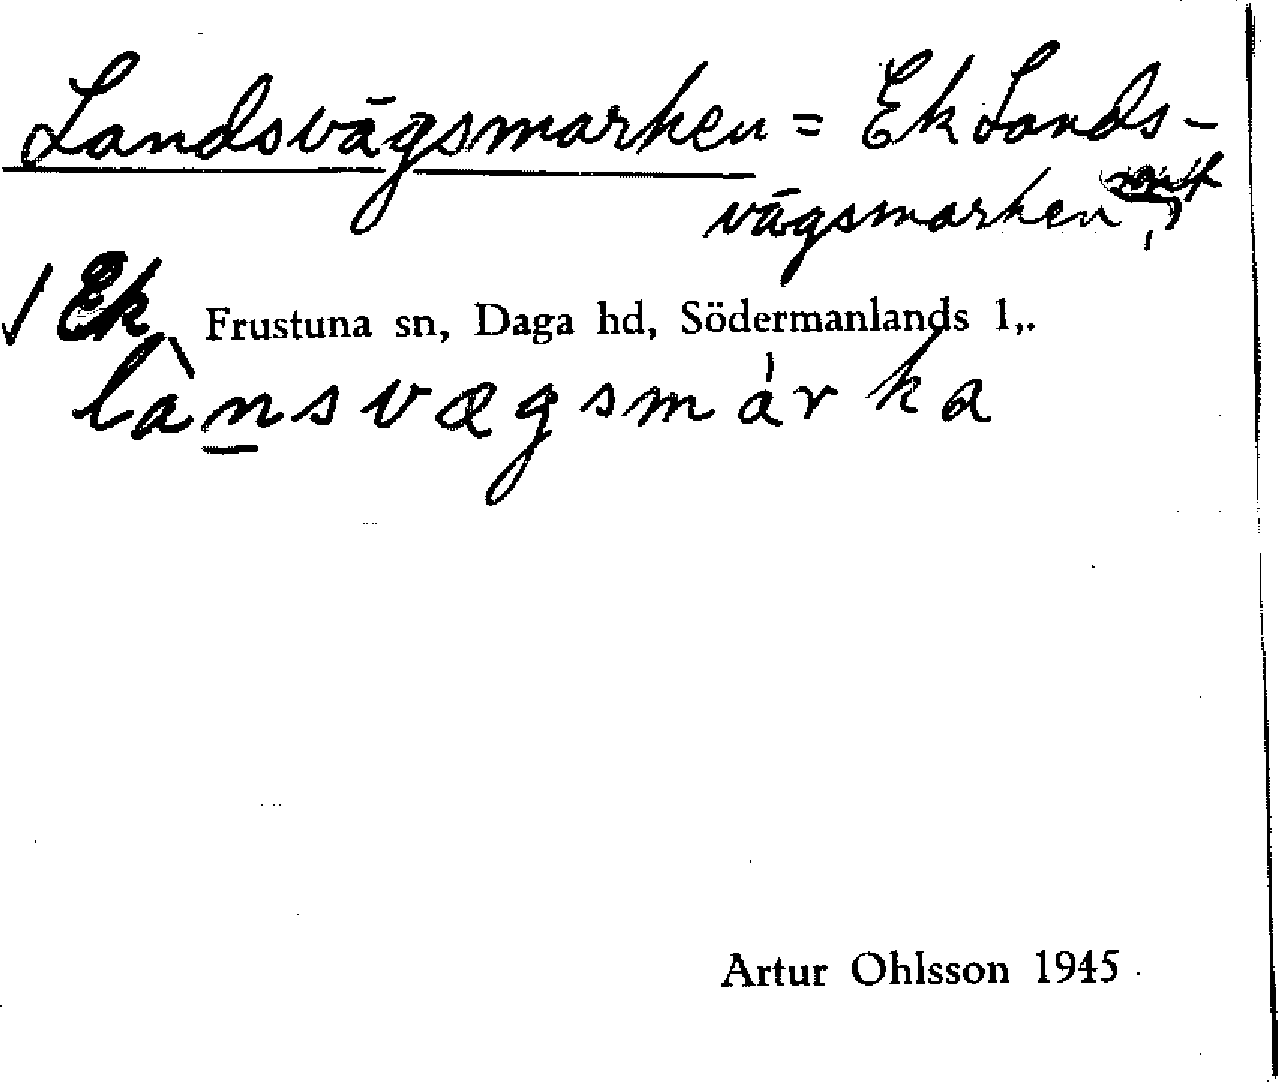 Landsvägsmarken = Ek Lands-
vägsmarken,
√ Ek, Frustuna sn, Daga hd, Södermanlands l,.
lànsvægsmárka
Artur Ohlsson 1945